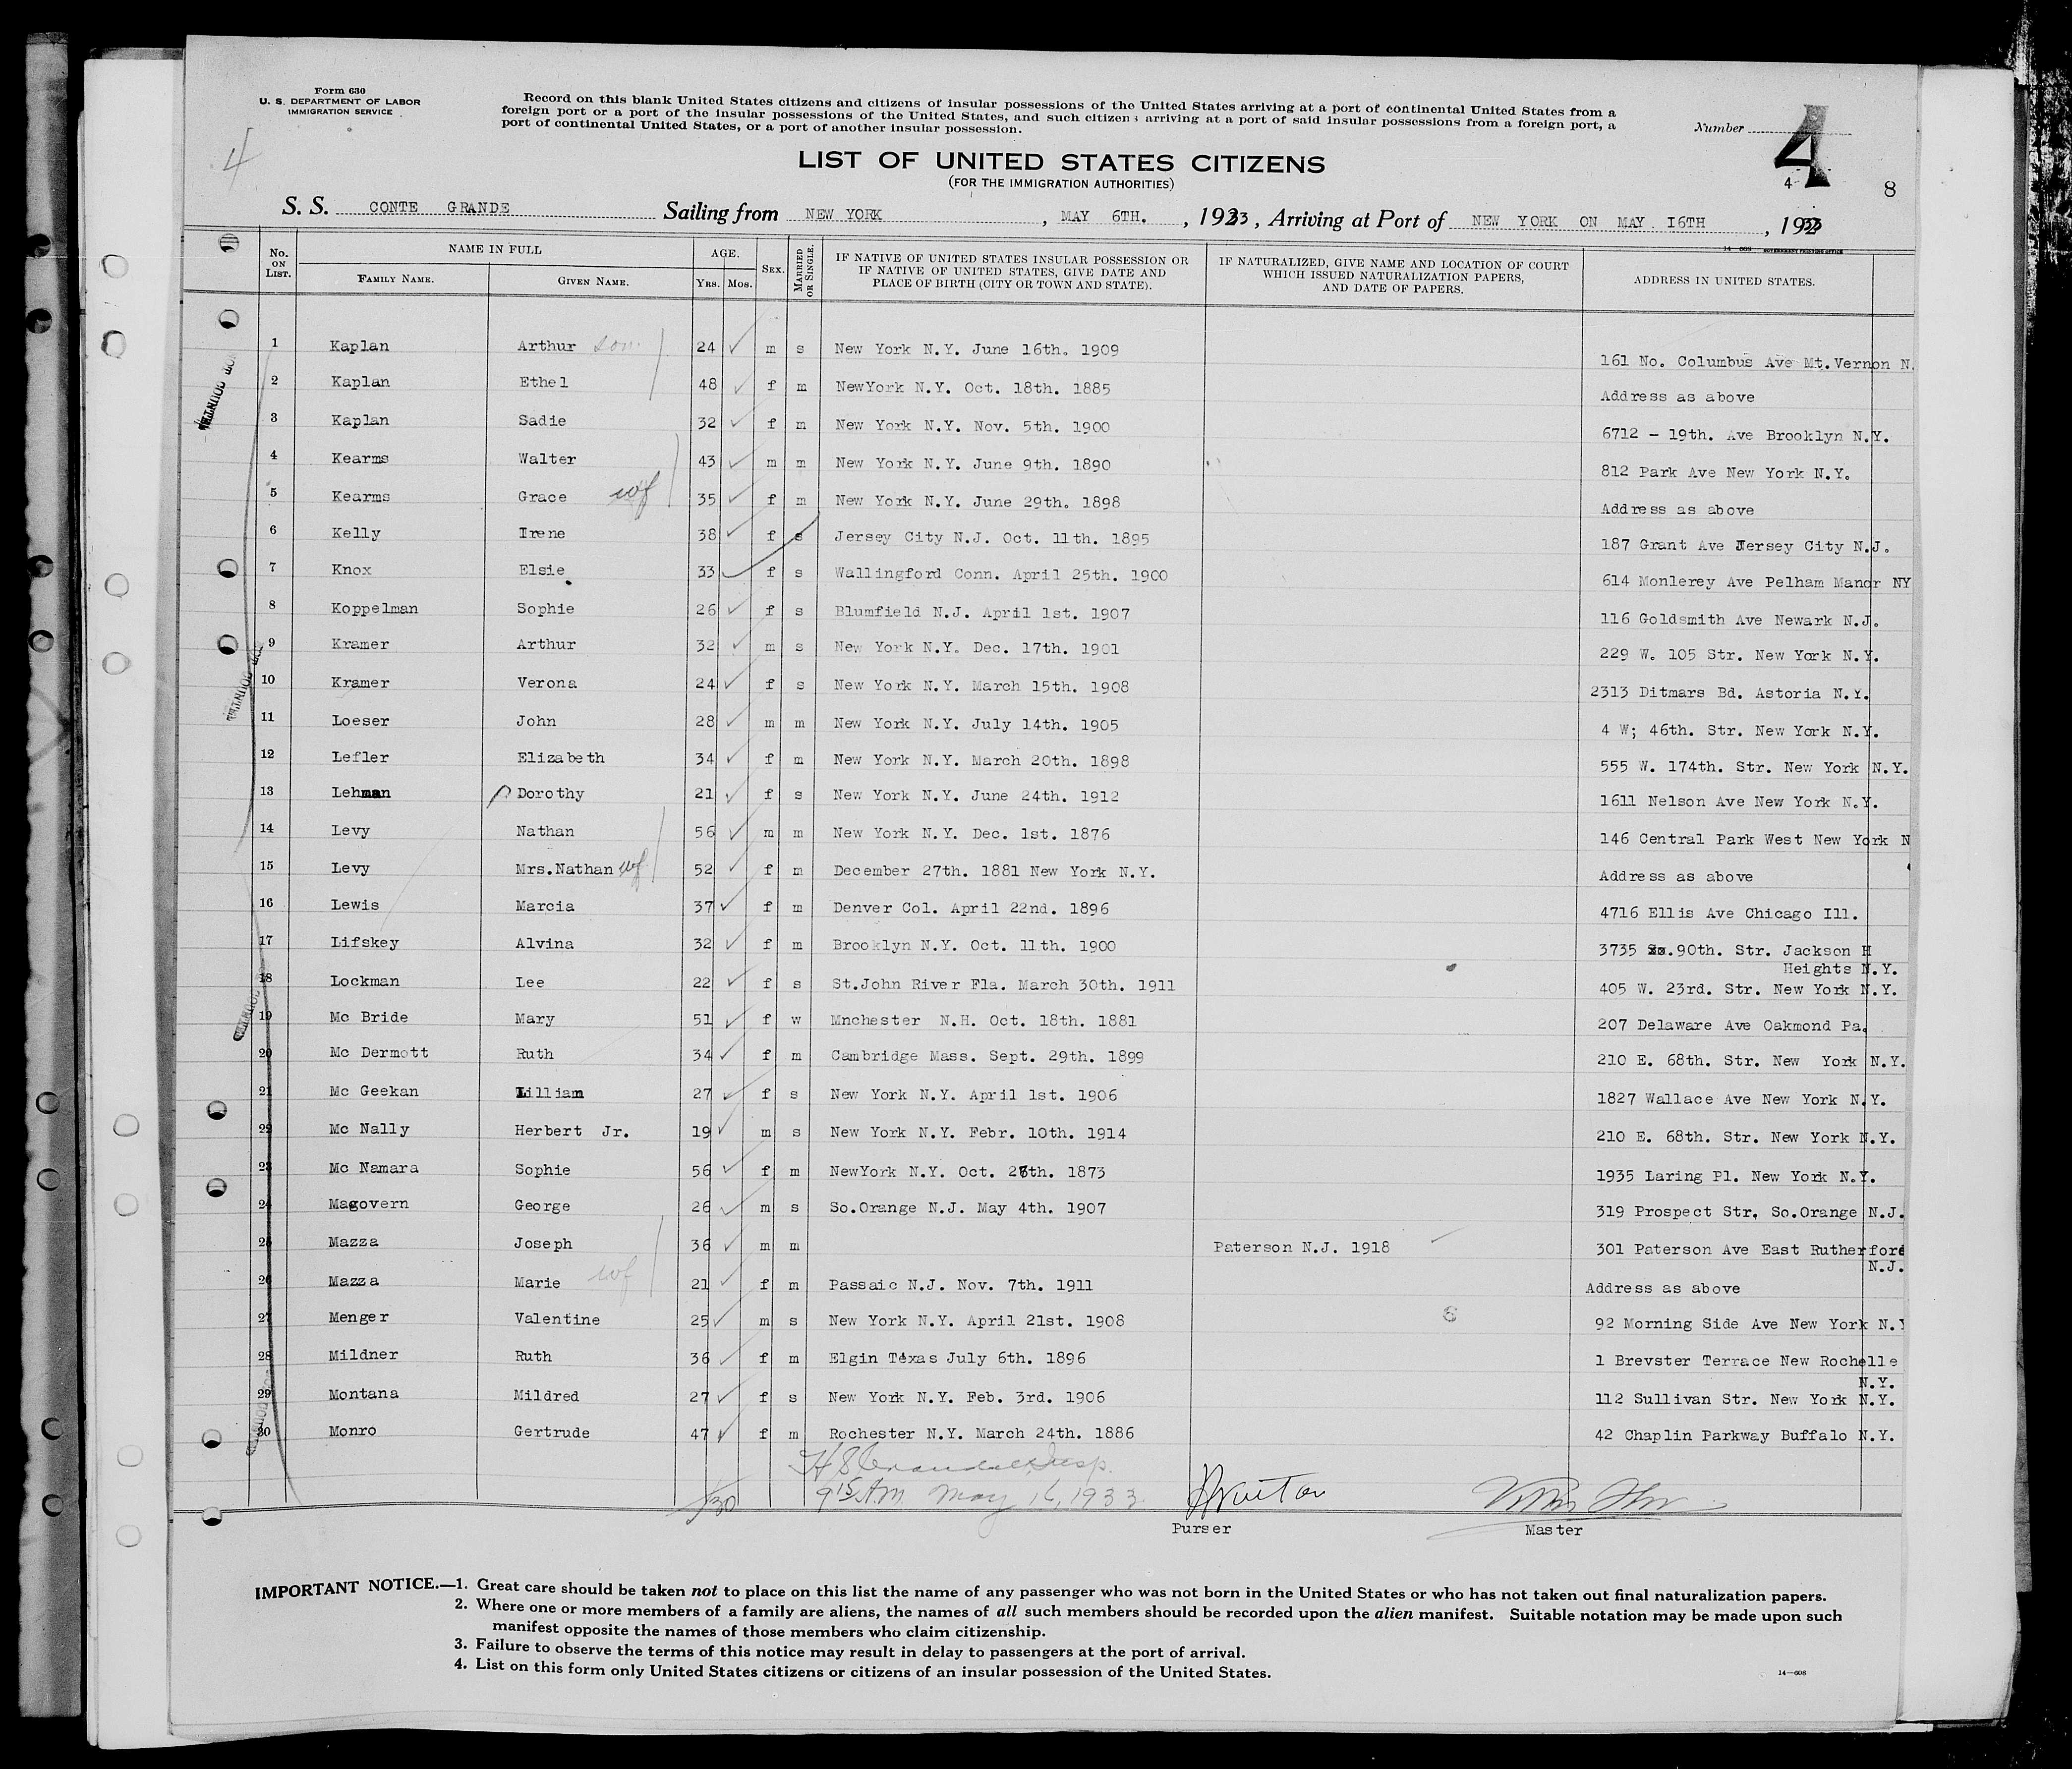 Form 630
U. S. DEPARTMENT OF LABOR
IMMIGRATION SERVICE
Record on this blank United States citizens and citizens of insular possessions of the United States arriving at a port of continental United States from a
foreign port or a port of the insular possessions of the United States, and such citizens arriving at a port of said insular possessions from a foreign port, a
port of continental United States, or a port of another insular possession.
Number 4
4
4
8
LIST OF UNITED STATES CITIZENS
(FOR THE IMMIGRATION AUTHORITIES)
S. S. CONTE GRANDE Sailing from NEW YORK, MAY 6TH., 1933, Arriving at Port of NEW YORK ON MAY 16TH, 1933
14-608 GOVERNMENT PRINTING OFFICE
No. ON LIST. NAME IN FULL FAMILY NAME. GIVEN NAME. AGE. YRS. MOS. SEX. MARRIED OR SINGLE. IF NATIVE OF UNITED STATES INSULAR POSSESSION OR IF NATIVE OF UNITED STATES, GIVE DATE AND PLACE OF BIRTH (CITY OR TOWN AND STATE). IF NATURALIZED, GIVE NAME AND LOCATION OF COURT WHICH ISSUED NATURALIZATION PAPERS, AND DATE OF PAPERS. ADDRESS IN UNITED STATES.
1 Kaplan Arthur son 24 m s New York N.Y. June 16th. 1909 161 No. Columbus Ave Mt.Vernon N.
2 Kaplan Ethel 48 f m NewYork N.Y. Oct. 18th. 1885 Address as above
3 Kaplan Sadie 32 f m New York N.Y. Nov. 5th. 1900 6712 - 19th. Ave Brooklyn N.Y.
4 Kearms Walter 43 m m New York N.Y. June 9th. 1890 812 Park Ave New York N.Y.
5 Kearms Grace wf 35 f m New York N.Y. June 29th. 1898 Address as above
6 Kelly Irene 38 f s Jersey City N.J. Oct. 11th. 1895 187 Grant Ave Jersey City N.J.
7 Knox Elsie 33 f s Wallingford Conn. April 25th. 1900 614 Monlerey Ave Pelham Manor NY
8 Koppelman Sophie 26 f s Blumfield N.J. April 1st. 1907 116 Goldsmith Ave Newark N.J.
9 Kramer Arthur 32 m s New York N.Y. Dec. 17th. 1901 229 W. 105 Str. New York N.Y.
10 Kramer Verona 24 f s New York N.Y. March 15th. 1908 2313 Ditmars Bd. Astoria N.Y.
11 Loeser John 28 m m New York N.Y. July 14th. 1905 4 W; 46th. Str. New York N.Y.
12 Lefler Elizabeth 34 f m New York N.Y. March 20th. 1898 555 W. 174th. Str. New York N.Y.
13 Lehman Dorothy 21 f s New York N.Y. June 24th. 1912 1611 Nelson Ave New York N.Y.
14 Levy Nathan 56 m m New York N.Y. Dec. 1st. 1876 146 Central Park West New York N
15 Levy Mrs.Nathan wf 52 f m December 27th. 1881 New York N.Y. Address as above
16 Lewis Marcia 37 f m Denver Col. April 22nd. 1896 4716 Ellis Ave Chicago Ill.
17 Lifskey Alvina 32 f m Brooklyn N.Y. Oct. 11th. 1900 3735 90th. Str. Jackson H
Heights N.Y.
18 Lockman Lee 22 f s St.John River Fla. March 30th. 1911 405 W. 23rd. Str. New York N.Y.
19 Mc Bride Mary 51 f w Mnchester N.H. Oct. 18th. 1881 207 Delaware Ave Oakmond Pa.
20 Mc Dermott Ruth 34 f m Cambridge Mass. Sept. 29th. 1899 210 E. 68th. Str. New York N.Y.
21 Mc Geekan Lilliam 27 f s New York N.Y. April 1st. 1906 1827 Wallace Ave New York N.Y.
22 Mc Nally Herbert Jr. 19 m s New York N.Y. Febr. 10th. 1914 210 E. 68th. Str. New York N.Y.
23 Mc Namara Sophie 56 f m NewYork N.Y. Oct. 1873 1935 Laring Pl. New York N.Y.
24 Magovern George 26 m s So.Orange N.J. May 4th. 1907 319 Prospect Str, So.Orange N.J.
25 Mazza Joseph 36 m m Paterson N.J. 1918 301 Paterson Ave East Rutherford
N.J.
26 Mazza Marie wf 21 f m Passaic N.J. Nov. 7th. 1911 Address as above
27 Menger Valentine 25 m s New York N.Y. April 21st. 1908 92 Morning Side Ave New York N.Y
28 Mildner Ruth 36 f m Elgin Texas July 6th. 1896 1 Brevster Terrace New Rochelle
N.Y.
29 Montana Mildred 27 f s New York N.Y. Feb. 3rd. 1906 112 Sullivan Str. New York N.Y.
30 Monro Gertrude 47 f m Rochester N.Y. March 24th. 1886 42 Chaplin Parkway Buffalo N.Y.
30 9 15 AM May 16, 1933
Purser Master
IMPORTANT NOTICE.—1. Great care should be taken not to place on this list the name of any passenger who was not born in the United States or who has not taken out final naturalization papers.
2. Where one or more members of a family are aliens, the names of all such members should be recorded upon the alien manifest. Suitable notation may be made upon such
manifest opposite the names of those members who claim citizenship.
3. Failure to observe the terms of this notice may result in delay to passengers at the port of arrival.
4. List on this form only United States citizens or citizens of an insular possession of the United States.
14—608